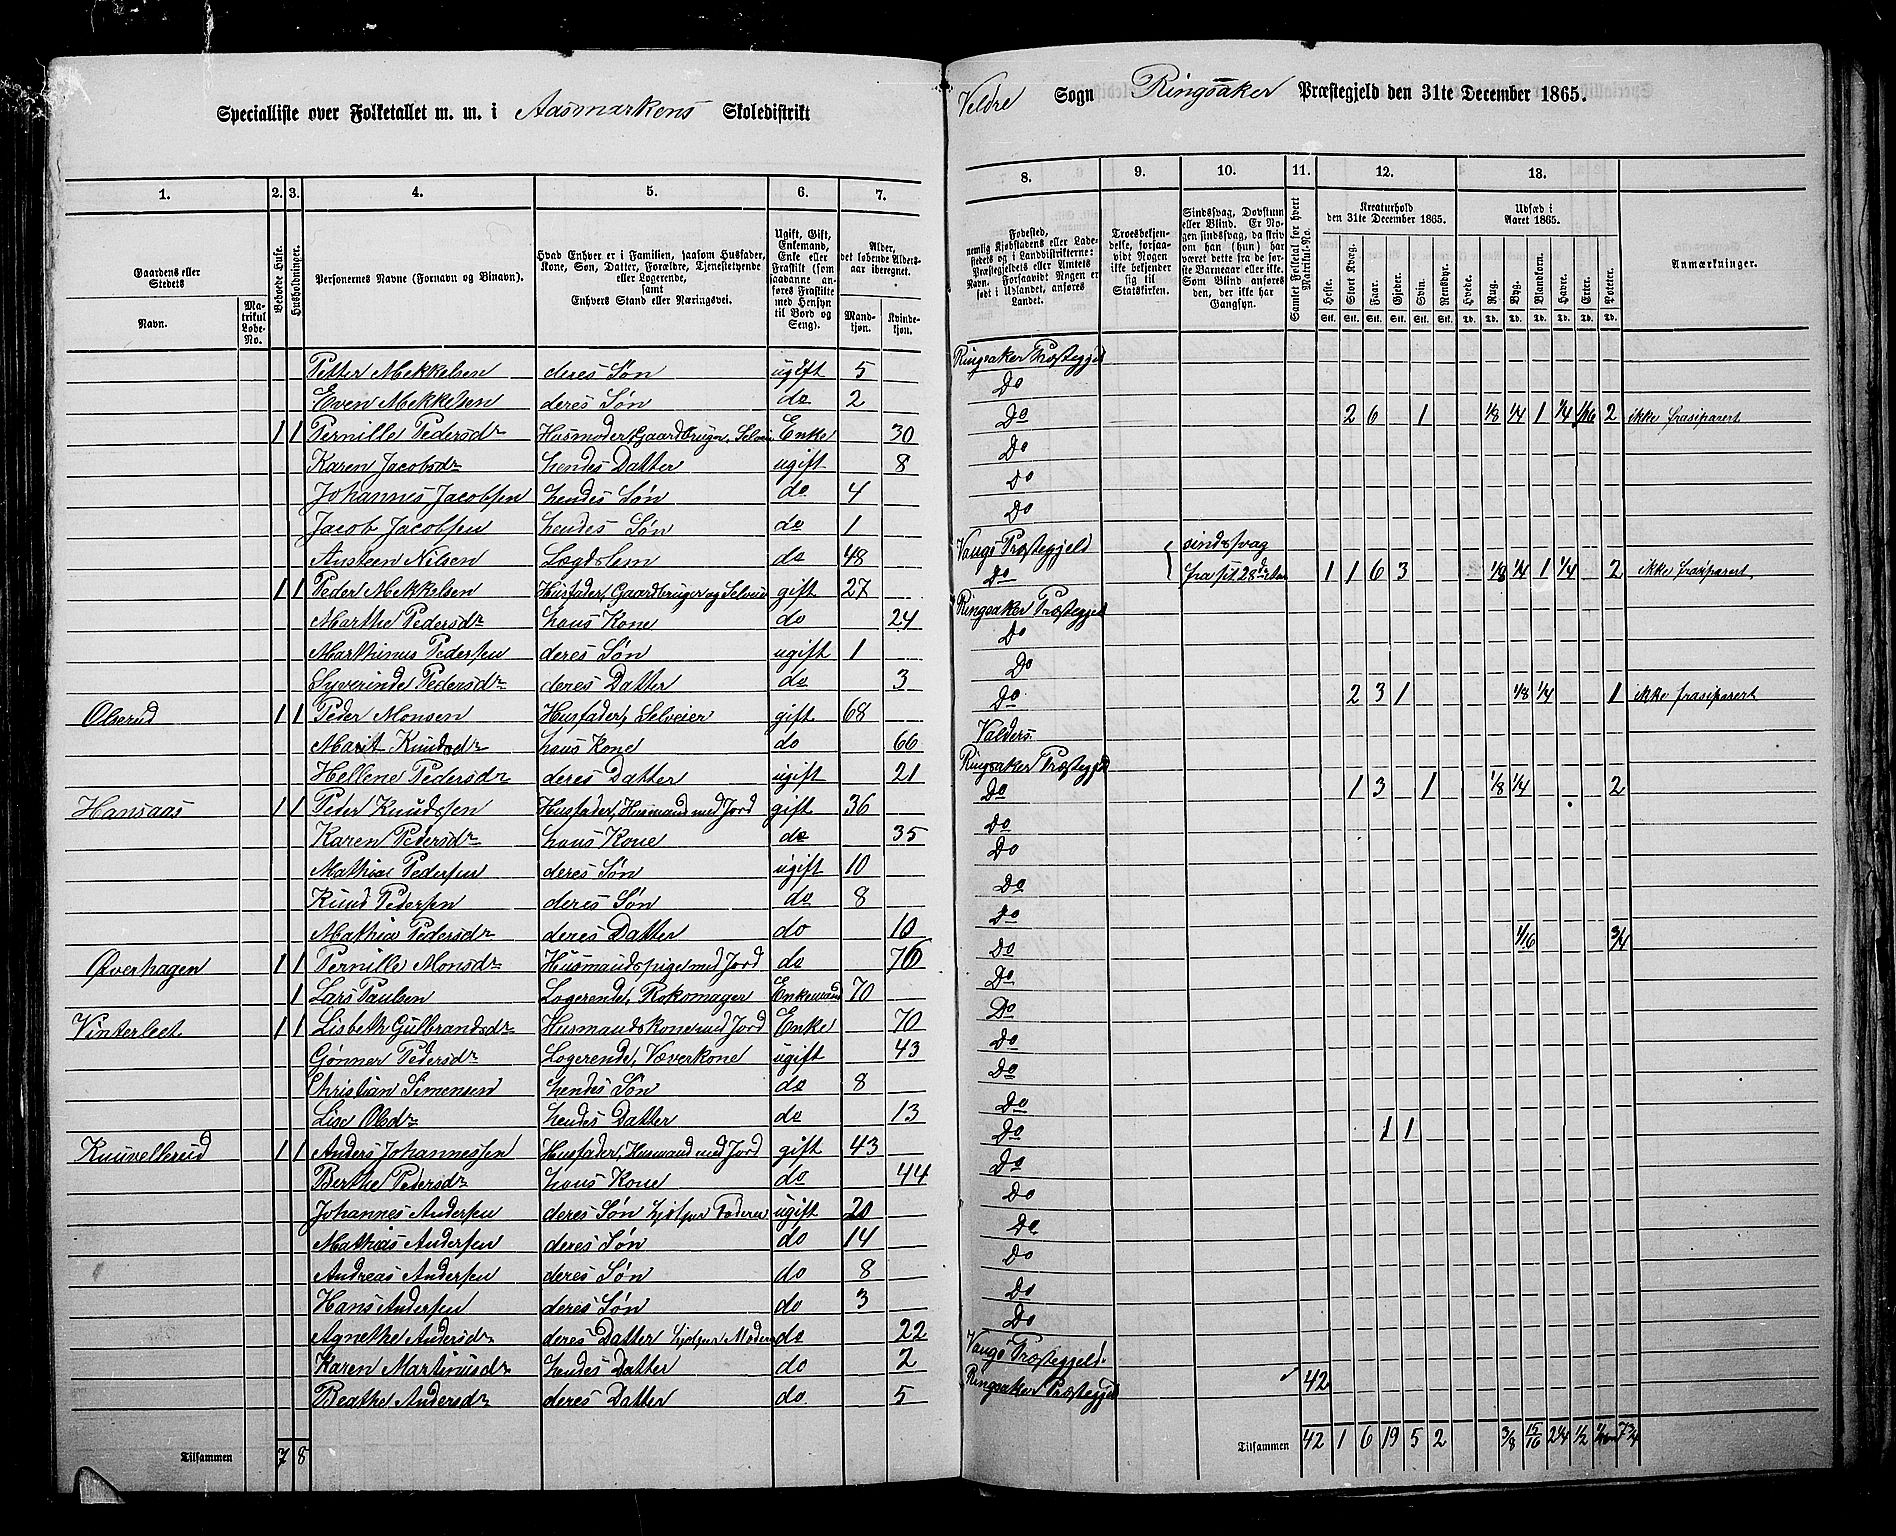 Specialliste over Folketallet m. m. i Aasmarkens Skoledistrikt
Veldre Sogn Ringsaker Præstegjeld den 31te December 1865.
1. 2. 3. 4. 5. 6. 7.
8. 9. 10. 11. 12. 13.
Gaardens eller Stedets Navn.
Matrikul Løbe-No.
Beboede Huse.
Husholdninger.
Personernes Navne (Fornavn og Binavn).
Hvad Enhver er i Familien, saasom Husfader, Kone, Søn, Datter, Forældre, Tjenestetyende eller Logerende, samt Enhvers Stand eller Næringsvei.
Ugift, Gift, Enkemand, Enke eller Fraskilt (som saadanne anføres Fraskilte med Hensyn til Bord og Seng).
Alder, det løbende Aldersaar iberegnet.
Mandkjøn. Kvindekjøn.
Fødested, nemlig Kjøbstadens eller Ladestedets og i Landdistrikterne: Præstegjeldets eller Amtets Navn. Forsaavidt Nogen er født i Udlandet, anføres Landet.
Troesbekjendelse, forsaavidt Nogen ikke bekjender sig til Statskirken.
Sindssvag, Døvstum eller Blind. Er Nogen sindssvag, da skrives om han (hun) har været dette fra de første Barneaar eller ikke. Som Blind anføres den, der ikke har Gangsyn.
Samlet Folketal for hvert Matrikul-No.
Kreaturhold den 31te December 1865.
Heste. Stort Kvæg. Faar. Gjeder. Svin. Rensdyr.
Stk. Stk. Stk. Stk. Stk. Stk.
Udsæd i Aaret 1865.
Hvede. Rug. Byg. Blandkorn. Havre. Erter. Poteter.
Td. Td. Td. Td. Td. Td. Td.
Anmærkninger.
Petter Mekkelsen deres Søn ugift 5 Ringsaker Præstegjeld
Even Mekkelsen deres Søn do 2 Do
1 1 Pernille Pedersdr Husmoder Gaardbruger, Selveier Enke 30 Do 2 6 1 1/8 1/4 1 1/4 1/16 2 ikke frasiparert
Karen Jacobsdr hendes Datter ugift 8 Do
Johannes Jacobsen hendes Søn do 4 Do
Jacob Jacobsen hendes Søn do 1 Do
Austeen Nilsen Lægdslem do 48 Vangs Præstegjeld sindssvag
1 1 Peder Mekkelsen Husfader, Gaardbruger og Selveier gift 27 Do fra sit 28de Aar 1 1 6 3 1/8 1/4 1 1/4 2 ikke frasiparert
Marthe Pedersdr hans Kone do 24 Ringsaker Præstegjeld
Marthinus Pedersen deres Søn ugift 1 Do
Syverinde Pedersdr deres Datter do 3 Do
Olserud 1 1 Peder Monsen Husfader, Selveier gift 68 Do 2 3 1 1/8 1/4 1 ikke frasiparert
Marit Knudsdr hans Kone do 66 Valders
Hellene Pedersdr deres Datter ugift 21 Ringsaker Præstegjeld
Hansaas 1 1 Peder Knudsen Husfader, Husmand med Jord gift 36 Do 1 3 1 1/8 1/4 2
Karen Pedersdr hans Kone do 35 Do
Mathias Pedersen deres Søn ugift 10 Do
Knud Pedersen deres Søn do 8 Do
Mathia Pedersdr deres Datter do 10 Do
Øverhagen 1 1 Pernille Monsdr Husmandspige med Jord do 76 Do 1/16 3/4
1 Lars Paulsen Logerende, Rokomager Enkemand 70 Do
Vinterleet 1 1 Lisbeth Gulbrandsdr Husmandskone med Jord Enke 70 Do
Gønner Pedersdr Logerende, Væverkone ugift 43 Do
Christian Simensen hendes Søn do 8 Do
Lise Olsdr hendes Datter do 13 Do
Knuvellerud 1 1 Anders Johannessen Husfader, Husmand med Jord gift 43 Do 1 1
Berthe Pedersdr hans Kone do 44 Do
Johannes Andersen deres Søn hjelper Faderen ugift 20 Do
Mathias Andersen deres Søn do 14 Do
Andreas Andersen deres Søn do 8 Do
Hans Andersen deres Søn do 3 Do
Agnethe Andersdr deres Datter hjelper Moderen do 22 Do
Karen Martinusdr hendes Datter do 2 Vangs Præstegjeld
Beathe Andersdr deres Datter do 5 Ringsaker Præstegjeld 42
Tilsammen 7 8
Tilsammen 42 1 6 19 5 2 3/8 15/16 2 1/4 1/2 7 3/4